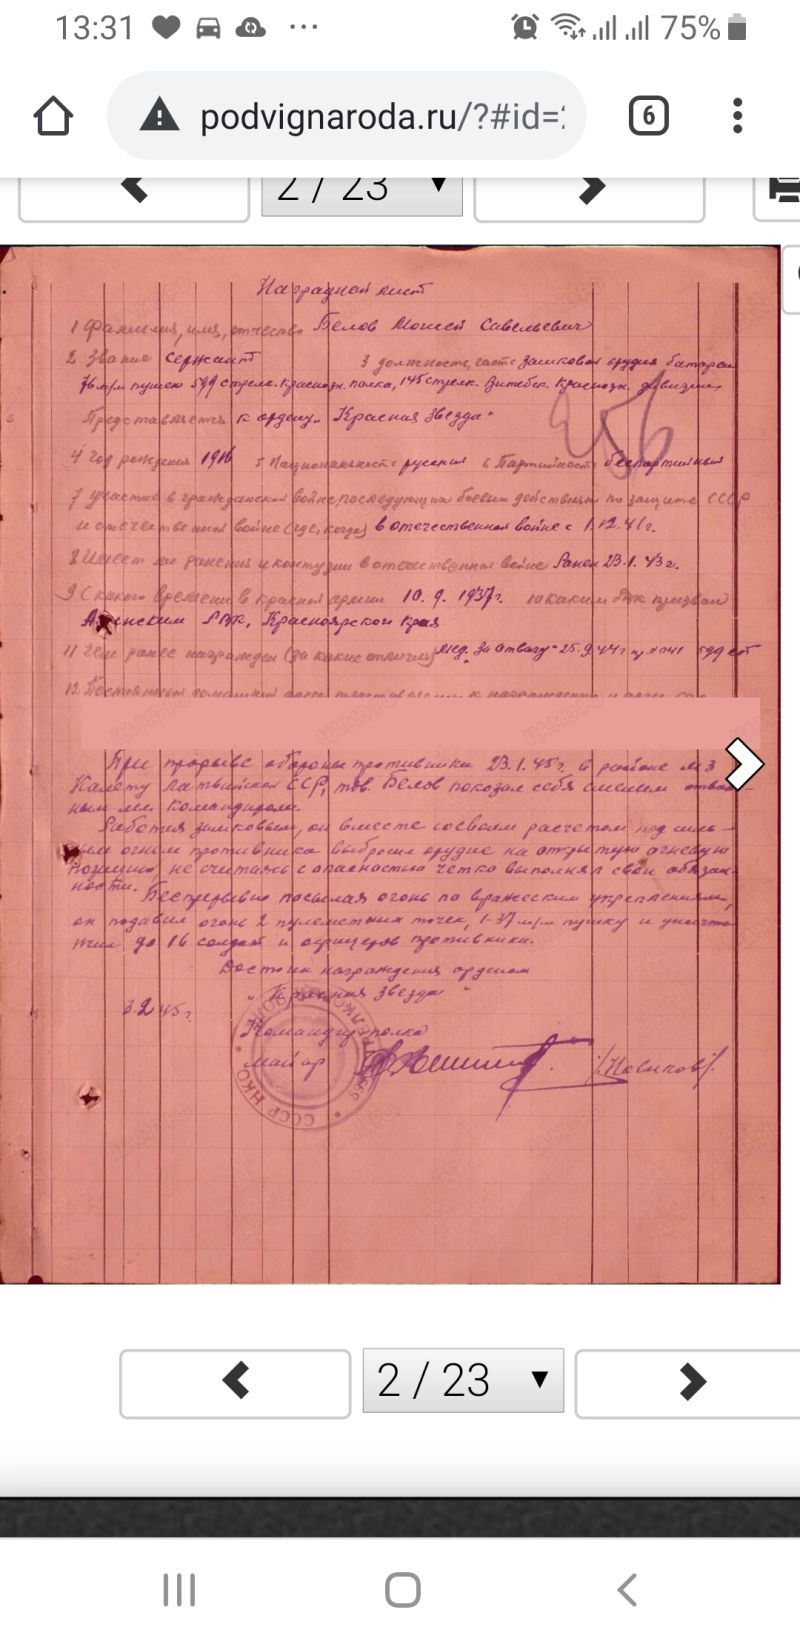 13:31
75%
podvignaroda.ru/?#id=
6
2 / 23
Наградной лист
1 Фамилия, имя, отчество Белов Моисей Савельевич
2 Звание Сержант 3 должность, часть замковой орудия батареи
76 м/м пушек 599 стрелк. Краснозн. полка, 145 стрелк. Витебск. Краснозн. дивизии
Представляется к ордену „Красная Звезда"
256
4 год рождения 1916 5 Национальность русский 6 Партийность беспартийный
7 участие в гражданской войне, последующих боевых действиях по защите СССР
и отечественной войне (где, когда) в отечественной войне с 1.12.41г.
8 Имеет ли ранения и контузии в отечественной войне Ранен 23.1.43г.
9 С какого времени в красной армии 10.9.1937г. 10 каким РВК призван
РВК, Красноярского края
11 Чем ранее награжден (за какие отличия) мед. „За отвагу" 25.9.44г 599 сп
12 Постоянный домашний адрес к награждению и адрес
При прорыве обороны противника 23.1.45г. в районе мз
Калету Латвийской ССР, тов. Белов показал себя смелым отваж-
ным мл. командиром.
Работая замковым, он вместе со своим расчетом под силь-
ным огнем противника выбросил орудие на открытую огневую
позицию, не считаясь с опасностью четко выполнял свои обязан-
ности. Беспрерывно посылая огонь по вражеским укреплениям,
он подавил огонь 2 пулеметных точек, 1-37 м/м пушку и уничто-
жил до 16 солдат и офицеров противника.
Достоин награждения орденом
„Красная Звезда"
3.2.45г.
Командир полка
майор /Новиков/
СССР НКО
2 / 23